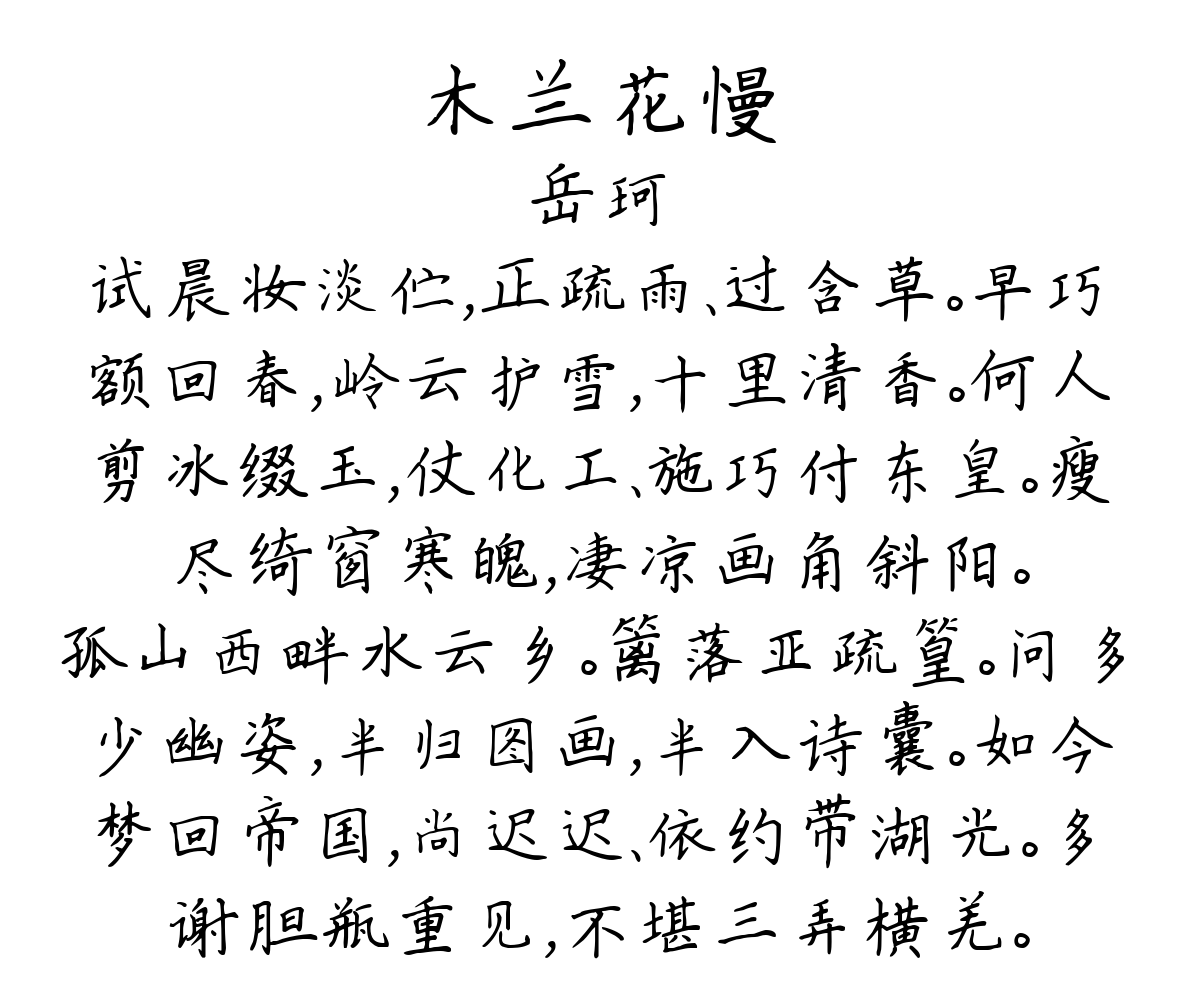 木兰花慢
岳珂
试晨妆淡伫,正疏雨、过含草。早巧
额回春,岭云护雪,十里清香。何人
剪冰缀玉,仗化工、施巧付东皇。瘦
尽绮窗寒魄,凄凉画角斜阳。
孤山西畔水云乡。篱落亚疏篁。问多
少幽姿,半归图画,半入诗囊。如今
梦回帝国,尚迟迟、依约带湖光。多
谢胆瓶重见,不堪三弄横羌。